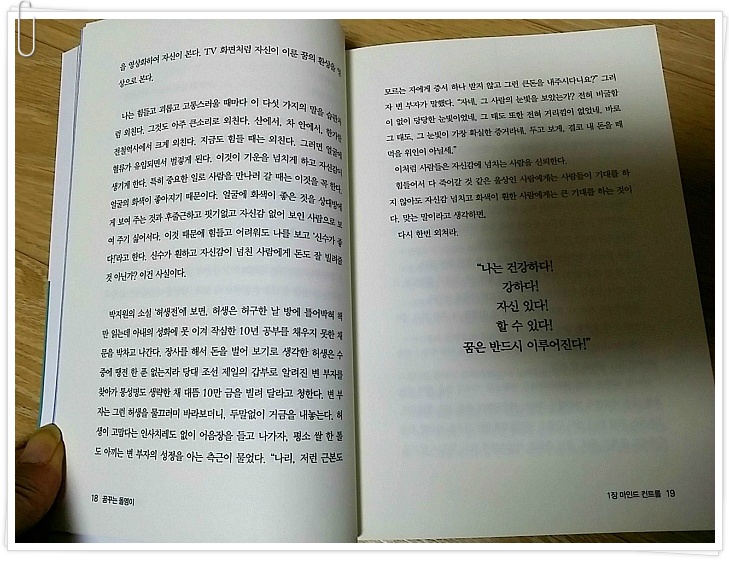 을 영상화하여 자신이 본다. TV 화면처럼 자신이 이룬 꿈의 환상을 영
상으로 본다.
나는 힘들고 괴롭고 고통스러울 때마다 이 다섯 가지의 말을 습관처
럼 외친다. 그것도 아주 큰소리로 외친다. 산에서, 차 안에서, 한가한
전철역사에서 크게 외친다. 지금도 힘들 때는 외친다. 그러면 얼굴에
혈류가 유입되면서 벌겋게 된다. 이것이 기운을 넘치게 하고 자신감이
생기게 한다. 특히 중요한 일로 사람을 만나러 갈 때는 이것을 꼭 한다.
얼굴의 화색이 좋아지기 때문이다. 얼굴에 화색이 좋은 것을 상대방에
게 보여 주는 것과 후줄근하고 핏기없고 자신감 없어 보인 사람으로 보
여 주기 싫어서다. 이것 때문에 힘들고 어려워도 나를 보고 '신수가 좋
다!'라고 한다. 신수가 훤하고 자신감이 넘친 사람에게 돈도 잘 빌려줄
것 아닌가? 이건 사실이다.
박지원의 소설 '허생전'에 보면, 허생은 허구한 날 방에 틀어박혀 책
만 읽는데 아내의 성화에 못 이겨 작심한 10년 공부를 채우지 못한 채
문을 박차고 나간다. 장사를 해서 돈을 벌어 보기로 생각한 허생은 수
중에 땡전 한 푼 없는지라 당대 조선 제일의 갑부로 알려진 변 부자를
찾아가 통성명도 생략한 채 대뜸 10만 금을 빌려 달라고 청한다. 변 부
자는 그런 허생을 물끄러미 바라보더니, 두말없이 거금을 내놓는다. 허
생이 고맙다는 인사치레도 없이 어음장을 들고 나가자, 평소 쌀 한 톨
도 아끼는 변 부자의 성정을 아는 측근이 물었다. “나리, 저런 근본도
18 꿈꾸는 돌멩이
모르는 자에게 증서 하나 받지 않고 그런 큰돈을 내주시다니요?” 그러
자 변 부자가 말했다. “자네, 그 사람의 눈빛을 보았는가? 전혀 비굴함
이 없이 당당한 눈빛이었네, 그 태도 또한 전혀 거리낌이 없었네. 바로
그 태도, 그 눈빛이 가장 확실한 증거라네. 두고 보게, 결코 내 돈을 떼
먹을 위인이 아닐세.”
이처럼 사람들은 자신감에 넘치는 사람을 신뢰한다.
힘들어서 다 죽어갈 것 같은 울상인 사람에게는 사람들이 기대를 하
지 않아도 자신감 넘치고 화색이 훤한 사람에게는 큰 기대를 하는 것이
다. 맞는 말이라고 생각하면,
다시 한번 외쳐라.
“나는 건강하다!
강하다!
자신 있다!
할 수 있다!
꿈은 반드시 이루어진다!”
1장 마인드 컨트롤 19